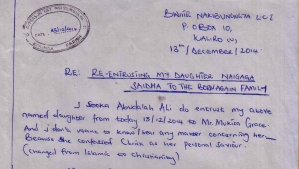 BWIITE NAKIBUNGWITA LC I
P. O BOX 10,
KALIRO (U)
18th / DECEMBER / 2014
18/12/2014
RE: RE-ENTRUSTING MY DAUGHTER NAIGAGA
SAIDHA TO THE BORNAGAIN FAMILY
I Sooka Abudalah Ali do entrust my above
named daughter from today 18/12/2014 to Mr. Mukisa Grace.
And I don't wanna to know/hear any matter concerning her
Because she confessed Christ as her personal saviour.
(changed from Islamic to Christianity)